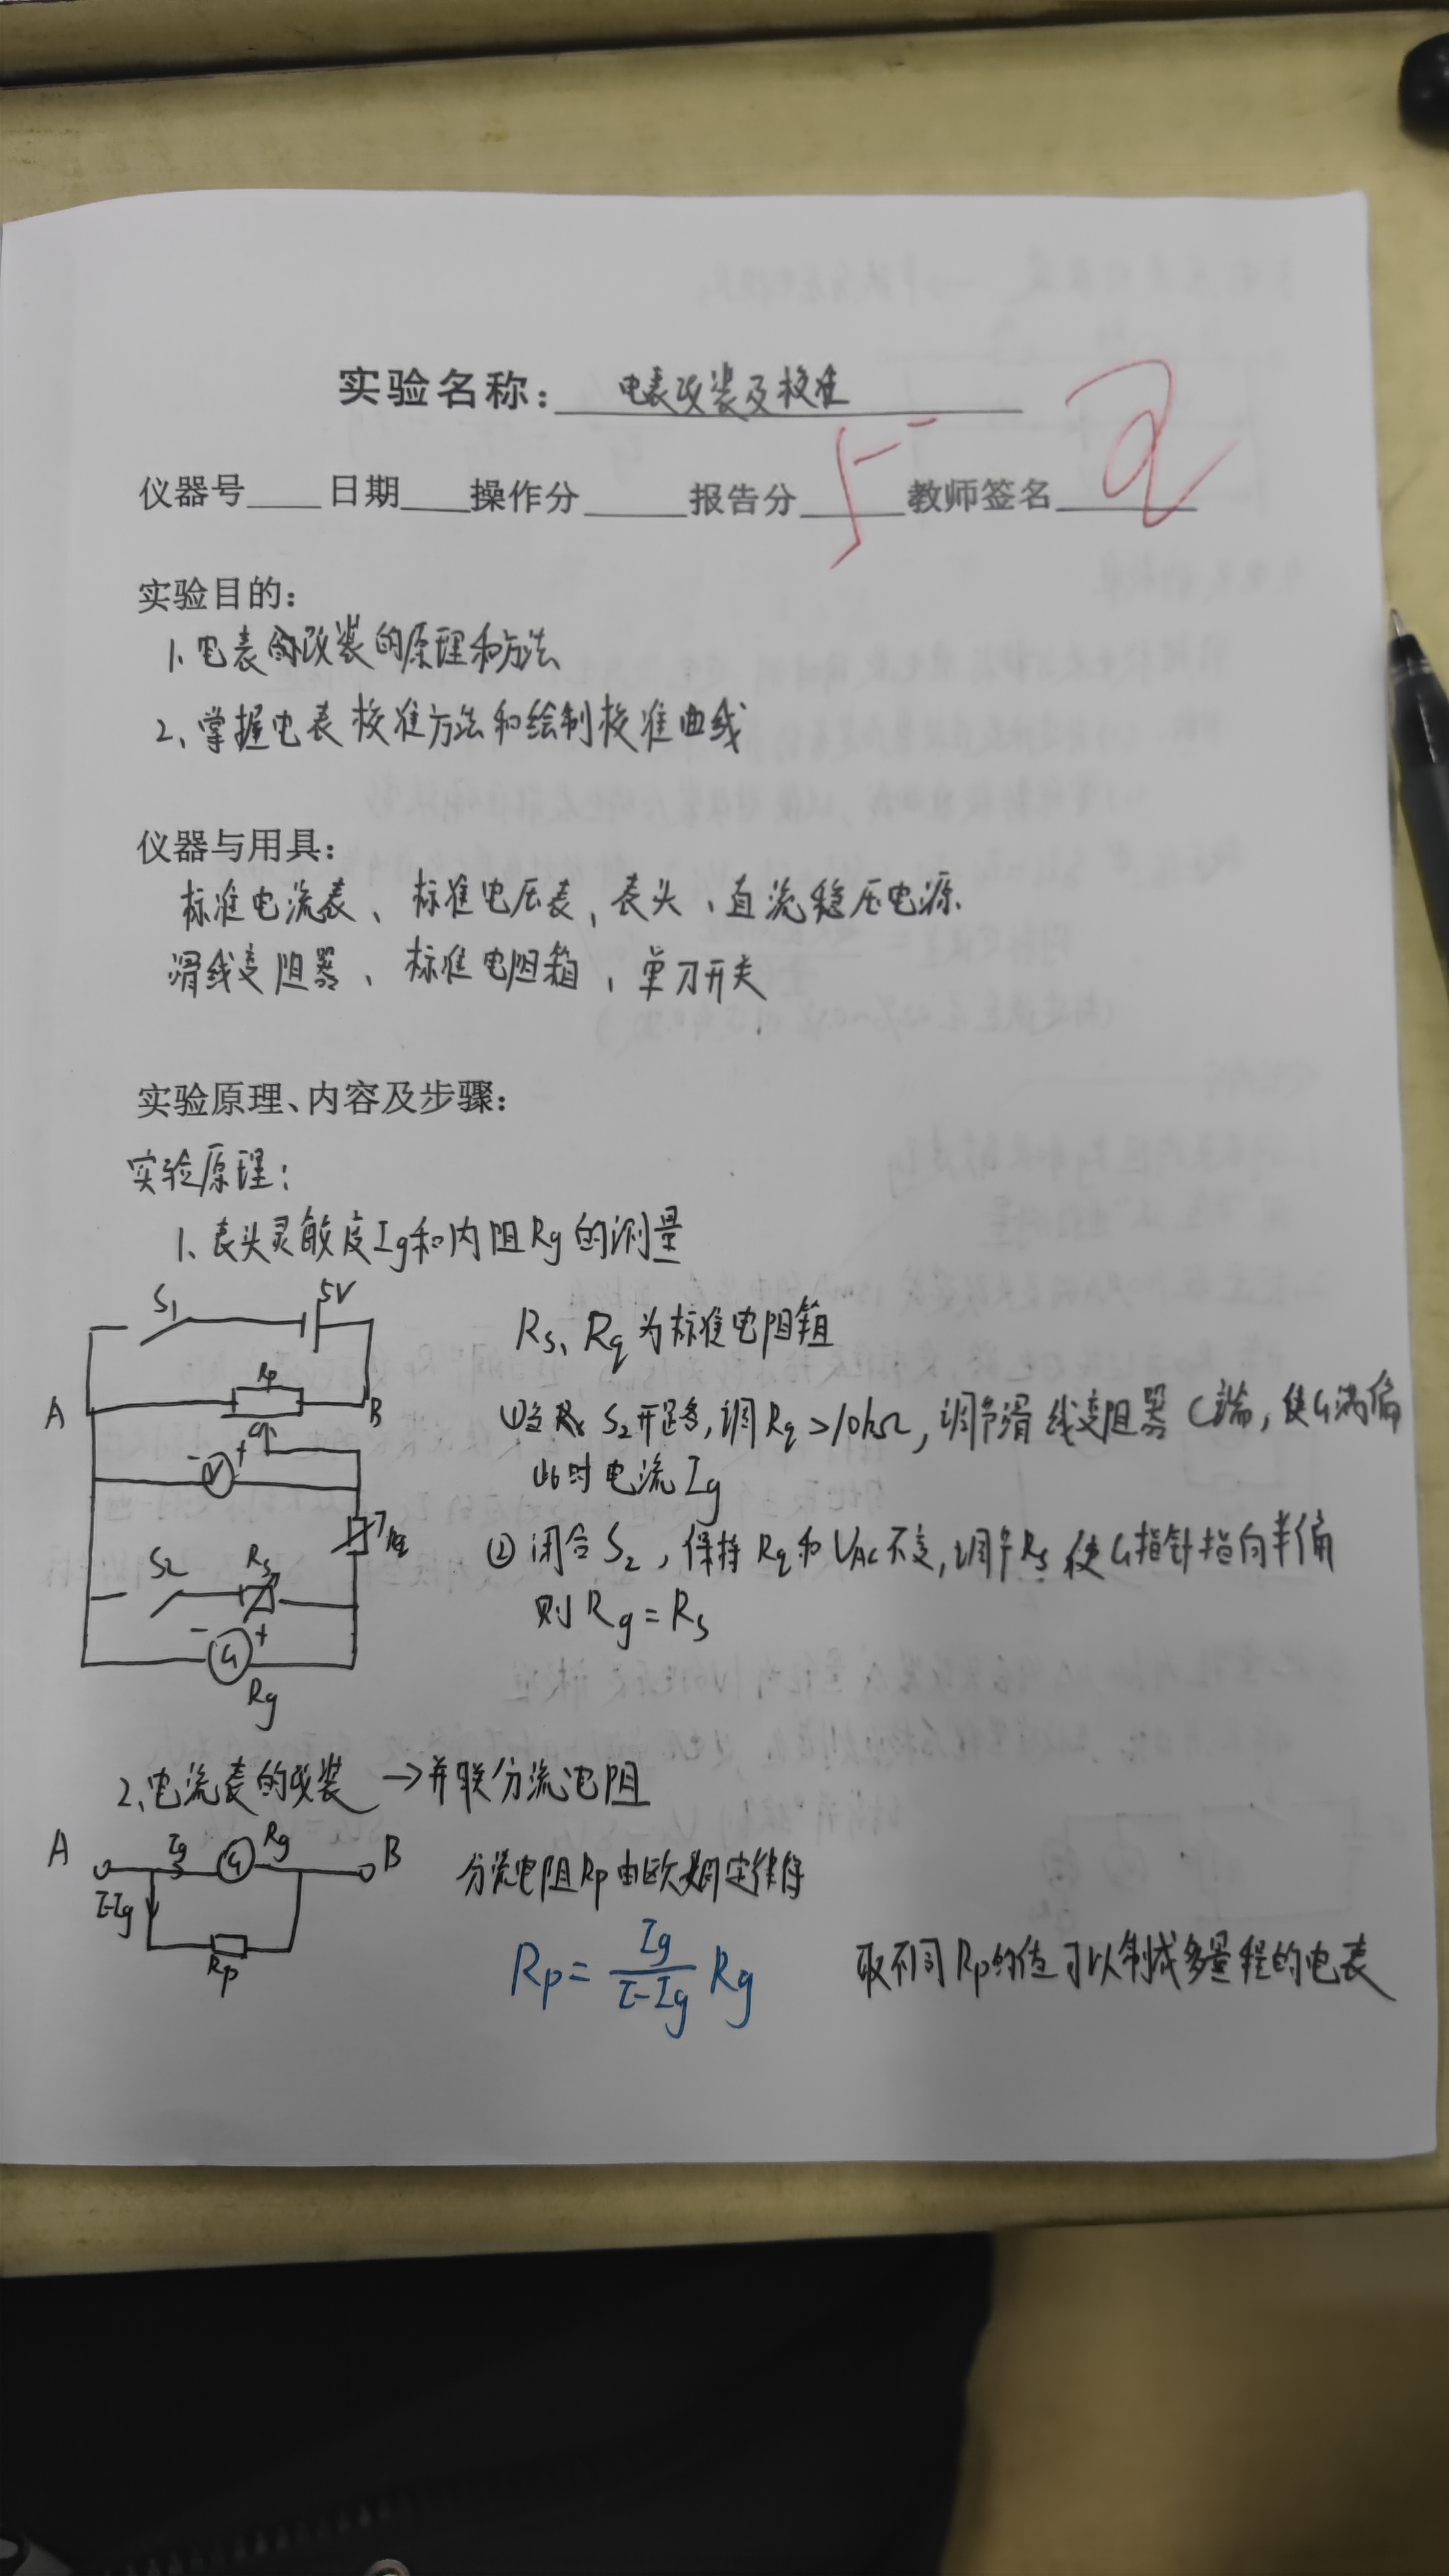 实验名称: 电表改装及校准
仪器号 日期 操作分 报告分 5- 教师签名
实验目的:
1、电表的改装的原理和方法
2、掌握电表校准方法和绘制校准曲线
仪器与用具:
标准电流表、标准电压表、表头、直流稳压电源
滑线变阻器、标准电阻箱、单刀开关
实验原理、内容及步骤:
实验原理:
1、表头灵敏度Ig和内阻Rg的测量
S1 5V
Rs、Rq为标准电阻箱
A Rp B
C
①当 S2开路,调Rq>10kΩ,调节滑线变阻器C端,使G满偏
- V +
此时电流Ig
②闭合S2,保持Rq和VAC不变,调节Rs使G指针指向半偏
S2 Rs
则Rg=Rs
- G +
Rg
2、电流表的改装→并联分流电阻
A Ig G Rg B
分流电阻Rp由欧姆定律得
I-Ig
Rp
Rp = Ig/(I-Ig) Rg 取不同Rp的值可以制成多量程的电表